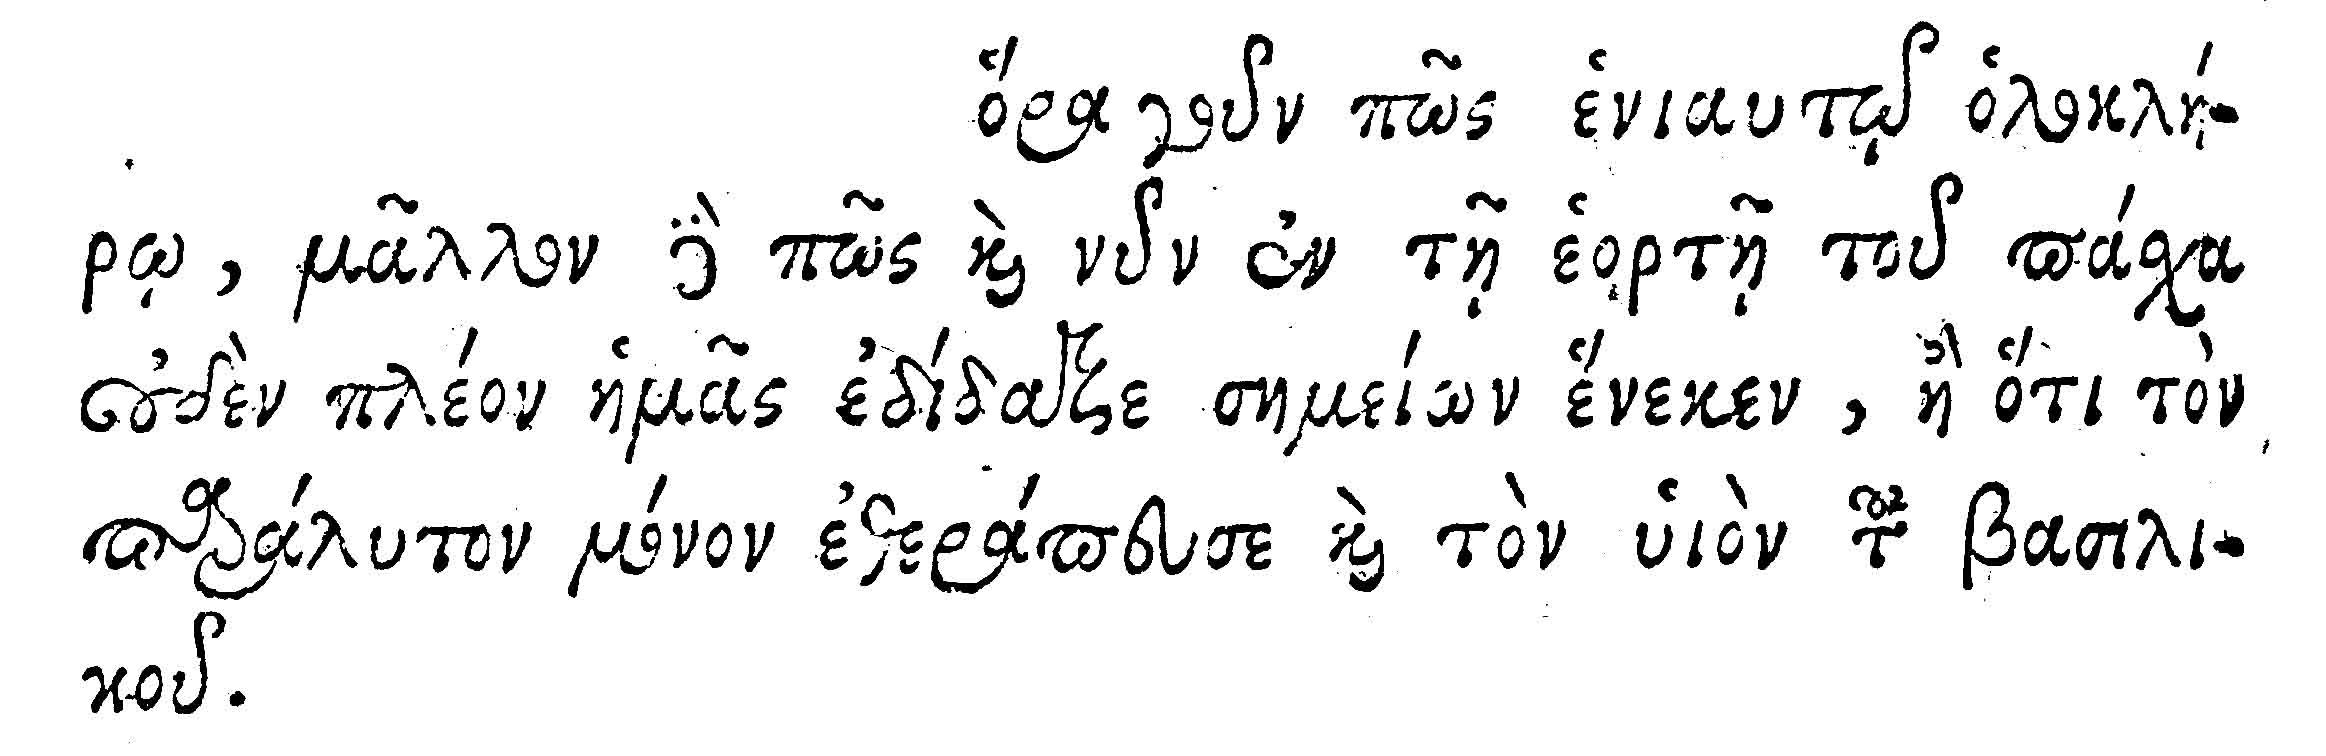 ὅρα γοῦν πῶς ἐνιαυτῷ ὁλοκλή-
ρῳ, μᾶλλον δὲ πῶς καὶ νῦν ἐν τῇ ἑορτῇ τοῦ πάσχα
οὐδὲν πλέον ἡμᾶς ἐδίδαξε σημείων ἕνεκεν, ἢ ὅτι τὸν
παράλυτον μόνον ἐθεράπευσε καὶ τὸν υἱὸν τοῦ βασιλι-
κοῦ.